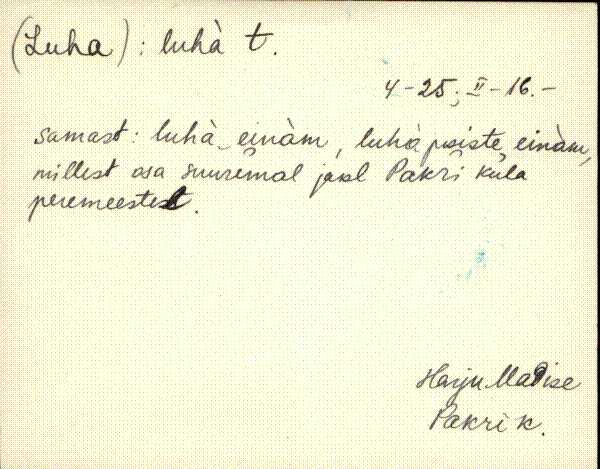 (Luha) : luhà t.
4-25; II-16.-
samast: luhà einàm, luhàpsiste einàm,
millest osa suuremal jaol Pakri küla
peremeestest.
Harju Madise
Pakri k.